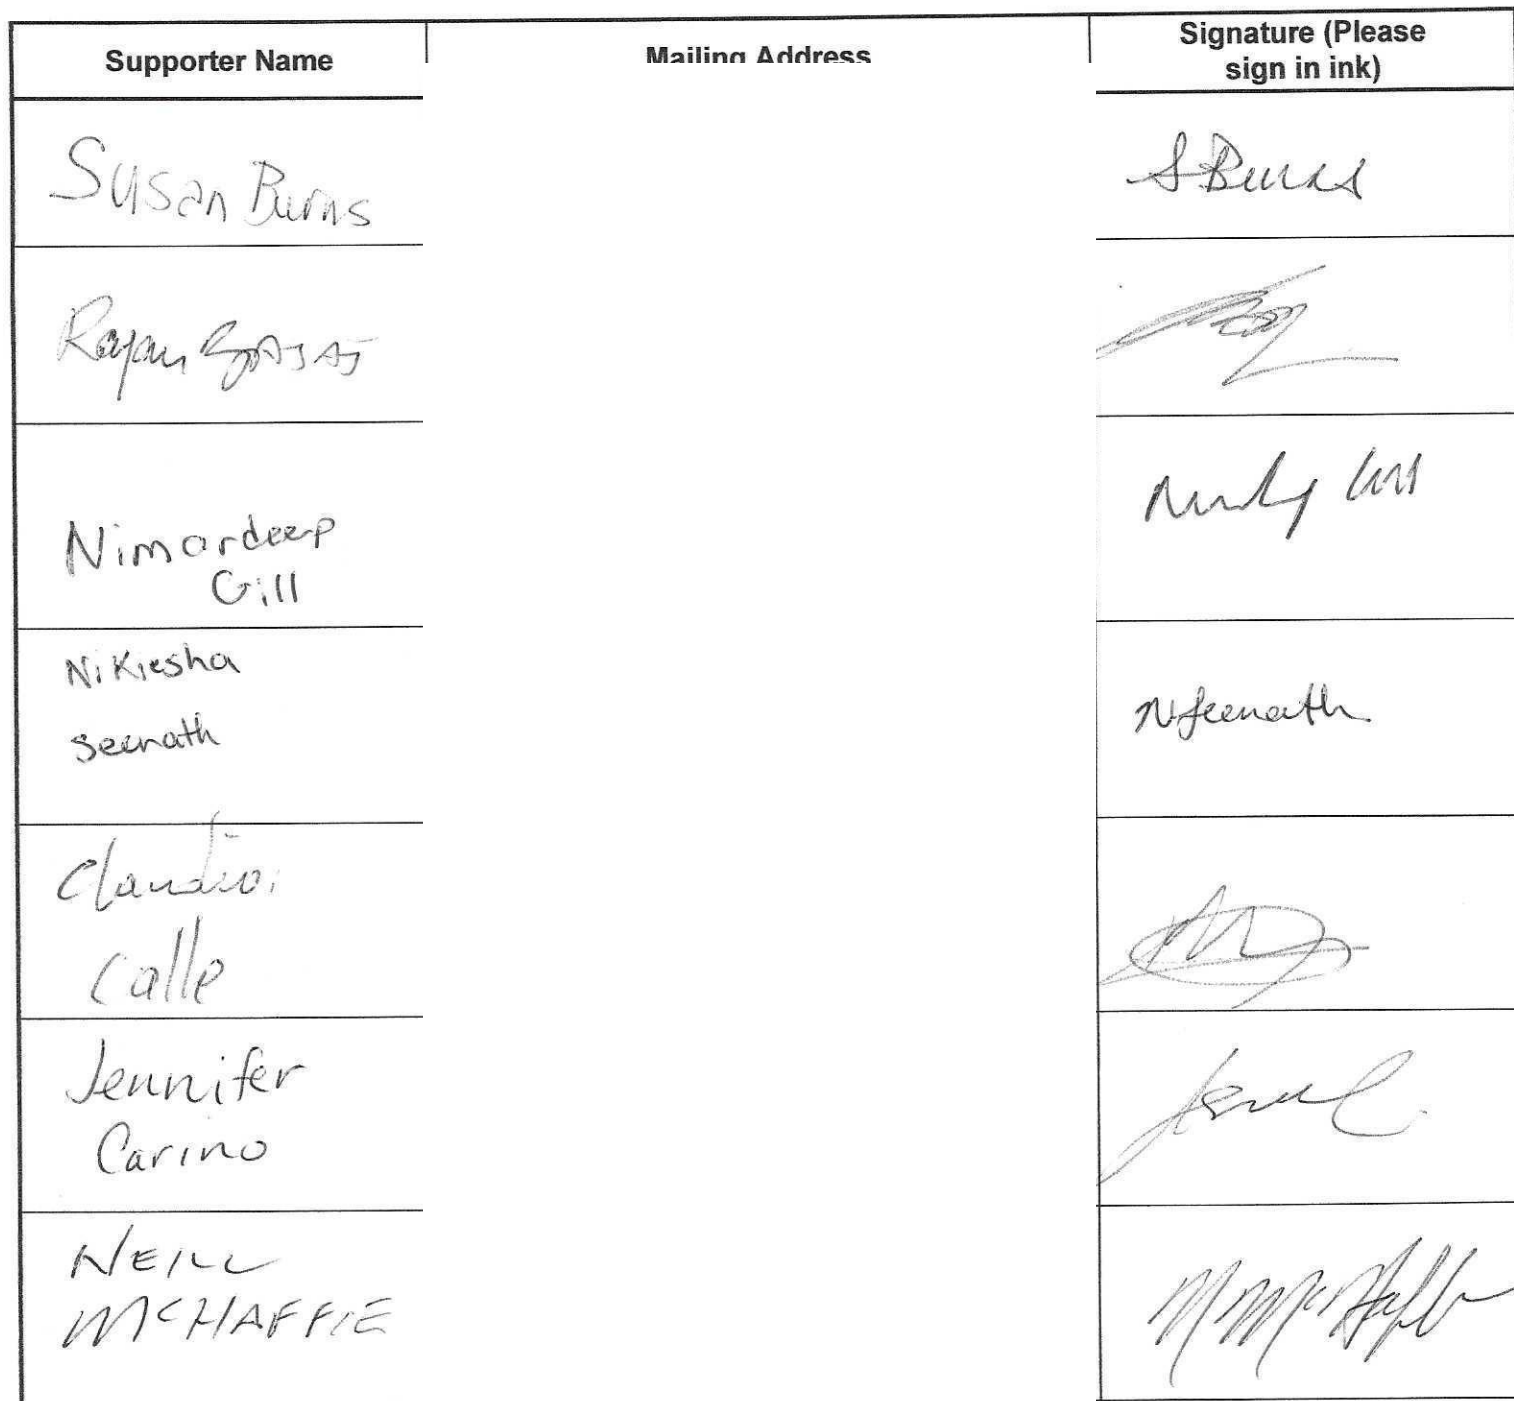 Supporter Name
Mailing Address
Signature (Please
sign in ink)
Susan Burns
S Burns
Rajan BAJAJ
Nimardeep
Gill
Gill
Nikiesha
seenath
N Seenath
Claudia
Calle
Jennifer
Carino
NEILL
MCHAFFIE
N McHaffie